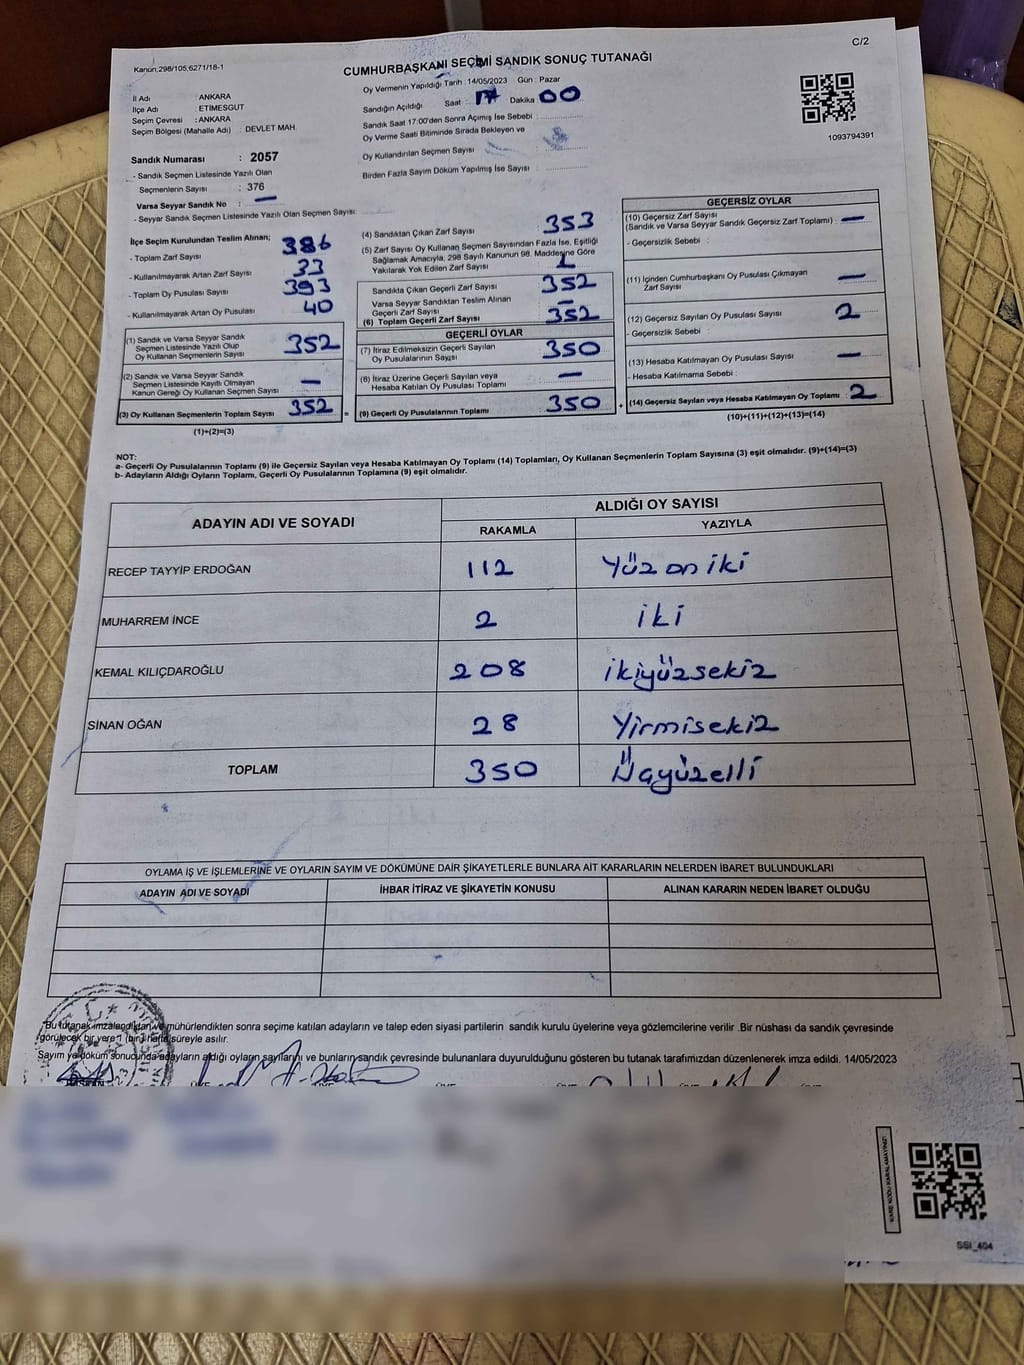 C/2
Kanun:298/105,6271/18-1
CUMHURBAŞKANI SEÇİMİ SANDIK SONUÇ TUTANAĞI
İl Adı : ANKARA
İlçe Adı : ETIMESGUT
Seçim Çevresi : ANKARA
Seçim Bölgesi (Mahalle Adı) : DEVLET MAH
Sandık Numarası : 2057
- Sandık Seçmen Listesinde Yazılı Olan
Seçmenlerin Sayısı : 376
Varsa Seyyar Sandık No : —
- Seyyar Sandık Seçmen Listesinde Yazılı Olan Seçmen Sayısı:
Oy Vermenin Yapıldığı Tarih : 14/05/2023 Gün : Pazar
Sandığın Açıldığı Saat : 17 Dakika : 00
Sandık Saat 17:00'den Sonra Açımış İse Sebebi :
Oy Verme Saati Bitiminde Sırada Bekleyen ve
Oy Kullandırılan Seçmen Sayısı :
Birden Fazla Sayım Döküm Yapılmış İse Sayısı :
1093794391
İlçe Seçim Kurulundan Teslim Alınan;
- Toplam Zarf Sayısı 386
- Kullanılmayarak Artan Zarf Sayısı 33
- Toplam Oy Pusulası Sayısı 393
- Kullanılmayarak Artan Oy Pusulası 40
(1) Sandık ve Varsa Seyyar Sandık
Seçmen Listesinde Yazılı Olup
Oy Kullanan Seçmenlerin Sayısı 352
(2) Sandık ve Varsa Seyyar Sandık
Seçmen Listesinde Kayıtlı Olmayan
Kanun Gereği Oy Kullanan Seçmen Sayısı —
(3) Oy Kullanan Seçmenlerin Toplam Sayısı 352 =
(1)+(2)=(3)
(4) Sandıktan Çıkan Zarf Sayısı 353
(5) Zarf Sayısı Oy Kullanan Seçmen Sayısından Fazla İse, Eşitliği
Sağlamak Amacıyla, 298 Sayılı Kanunun 98. Maddesine Göre
Yakılarak Yok Edilen Zarf Sayısı 1
Sandıkta Çıkan Geçerli Zarf Sayısı 352
Varsa Seyyar Sandıktan Teslim Alınan
Geçerli Zarf Sayısı —
(6) Toplam Geçerli Zarf Sayısı 352
GEÇERLİ OYLAR
(7) İtiraz Edilmeksizin Geçerli Sayılan
Oy Pusulalarının Sayısı 350
(8) İtiraz Üzerine Geçerli Sayılan veya
Hesaba Katılan Oy Pusulası Toplamı —
(9) Geçerli Oy Pusulalarının Toplamı 350 +
GEÇERSİZ OYLAR
(10) Geçersiz Zarf Sayısı
(Sandık ve Varsa Seyyar Sandık Geçersiz Zarf Toplamı) : —
- Geçersizlik Sebebi :
(11) İçinden Cumhurbaşkanı Oy Pusulası Çıkmayan
Zarf Sayısı —
(12) Geçersiz Sayılan Oy Pusulası Sayısı : 2
- Geçersizlik Sebebi :
(13) Hesaba Katılmayan Oy Pusulası Sayısı : —
- Hesaba Katılmama Sebebi :
(14) Geçersiz Sayılan veya Hesaba Katılmayan Oy Toplamı : 2
(10)+(11)+(12)+(13)=(14)
NOT:
a- Geçerli Oy Pusulalarının Toplamı (9) ile Geçersiz Sayılan veya Hesaba Katılmayan Oy Toplamı (14) Toplamları, Oy Kullanan Seçmenlerin Toplam Sayısına (3) eşit olmalıdır. (9)+(14)=(3)
b- Adayların Aldığı Oyların Toplamı, Geçerli Oy Pusulalarının Toplamına (9) eşit olmalıdır.
ADAYIN ADI VE SOYADI ALDIĞI OY SAYISI
RAKAMLA YAZIYLA
RECEP TAYYİP ERDOĞAN 112 Yüz on iki
MUHARREM İNCE 2 iki
KEMAL KILIÇDAROĞLU 208 ikiyüzsekiz
SİNAN OĞAN 28 Yirmisekiz
TOPLAM 350 Üçyüzelli
OYLAMA İŞ VE İŞLEMLERİNE VE OYLARIN SAYIM VE DÖKÜMÜNE DAİR ŞİKAYETLERLE BUNLARA AİT KARARLARIN NELERDEN İBARET BULUNDUKLARI
ADAYIN ADI VE SOYADI İHBAR İTİRAZ VE ŞİKAYETİN KONUSU ALINAN KARARIN NEDEN İBARET OLDUĞU
Bu tutanak imzalandıktan ve mühürlendikten sonra seçime katılan adayların ve talep eden siyasi partilerin sandık kurulu üyelerine veya gözlemcilerine verilir .Bir nüshası da sandık çevresinde
görülecek bir yere 1 (bir) hafta süreyle asılır.
Sayım ve döküm sonucunda adayların aldığı oyların sayılarını ve bunların sandık çevresinde bulunanlara duyurulduğunu gösteren bu tutanak tarafımızdan düzenlenerek imza edildi. 14/05/2023
KARE KODU KARALAMAYINIZ!
SSI_404